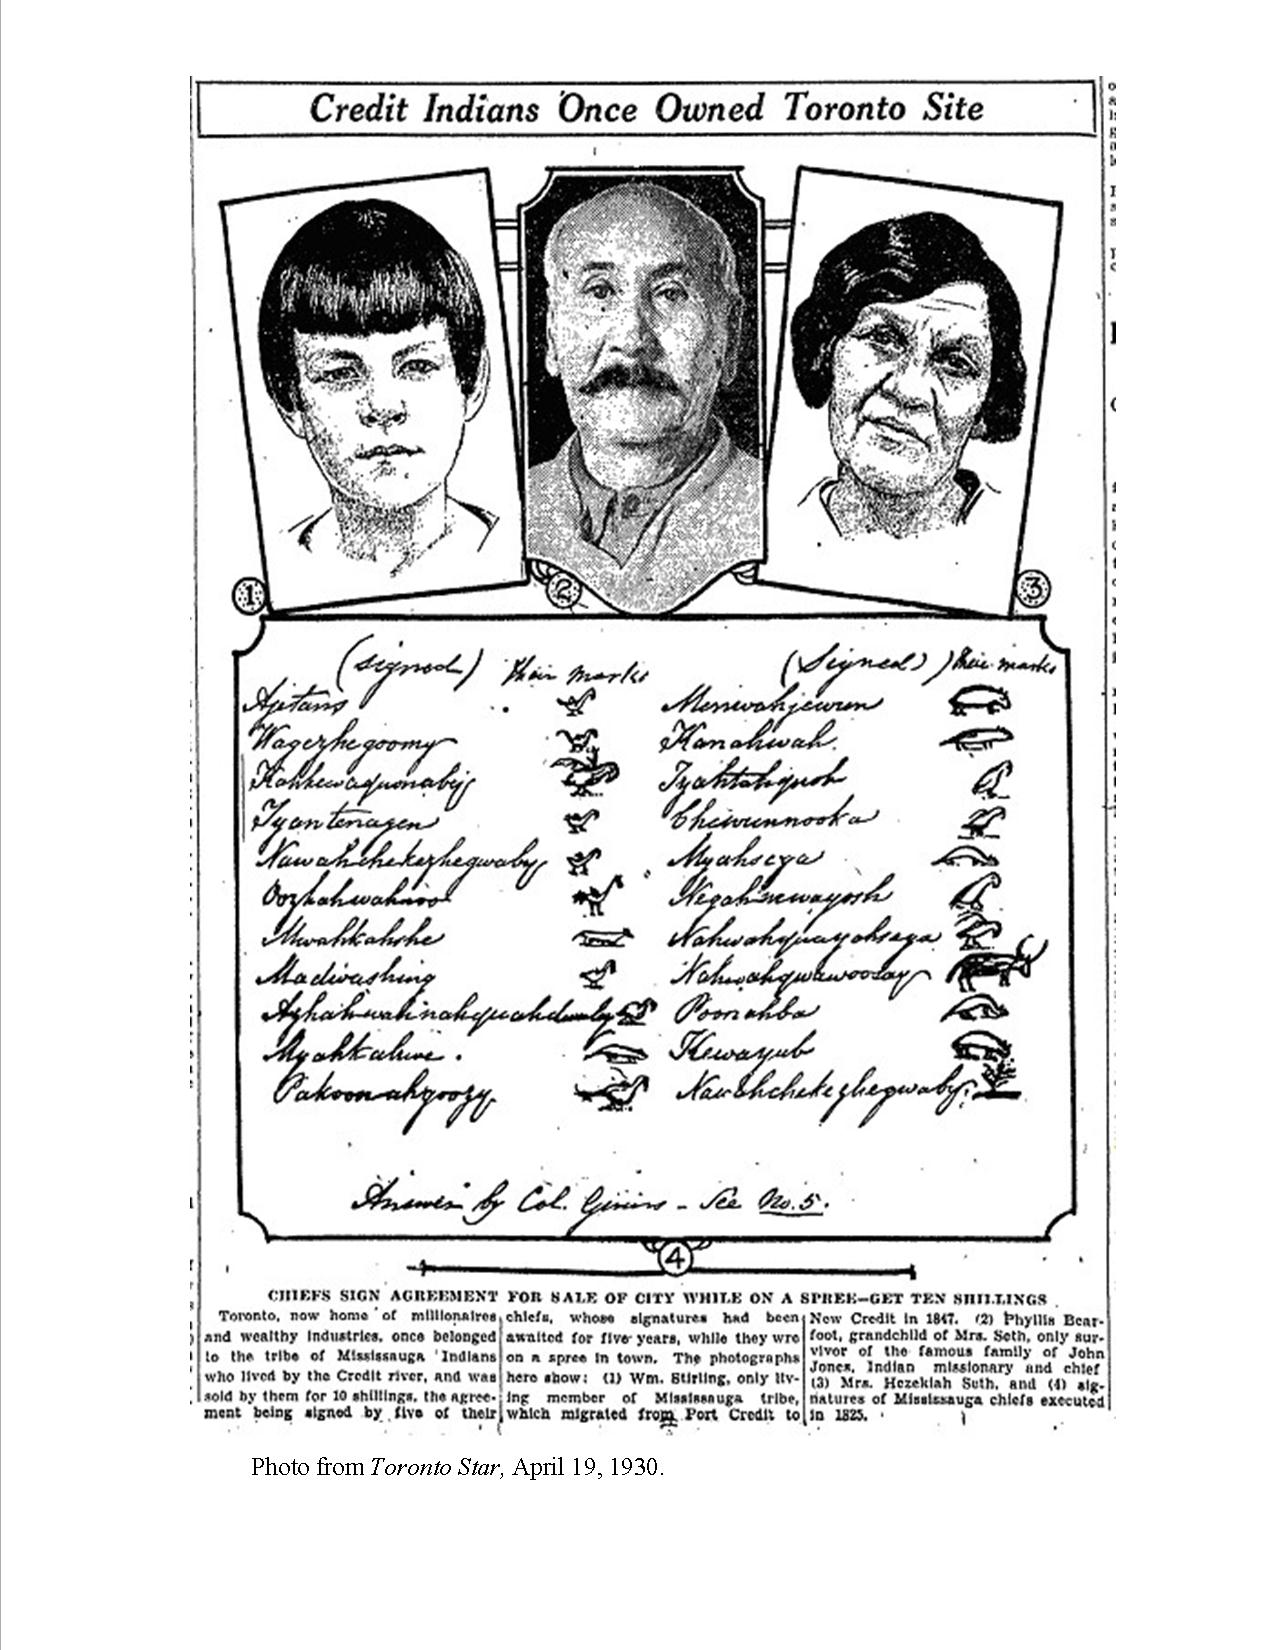 Credit Indians Once Owned Toronto Site
1
2
3
(Signed) their marks
(Signed) their marks
Ajetans
Wagezhegoomy
Kahkewaquonaby
Iyantenagen
Nawahchekezhegwaby
Mwahkahshe
Madwashing
Myahkahwe.
Pakoonahgoozy
Meniwahjewun
Kanahwah.
Iyahtahquoh
Chewunnooka
Myahsega
Negahnewayosh
Nahwahquayahsega
Nahwahqwawoosay
Poonahba
Kewayub
Nawahchekezhegwaby.
Answer by Col. Givins - See No. 5.
4
CHIEFS SIGN AGREEMENT FOR SALE OF CITY WHILE ON A SPREE—GET TEN SHILLINGS
Toronto, now home of millionaires
and wealthy industries, once belonged
to the tribe of Mississauga Indians
who lived by the Credit river, and was
sold by them for 10 shillings, the agree-
ment being signed by five of their
chiefs, whose signatures had been
awaited for five years, while they wre
on a spree in town. The photographs
here show: (1) Wm. Stirling, only liv-
ing member of Mississauga tribe,
which migrated from Port Credit to
New Credit in 1847. (2) Phyllis Bear-
foot, grandchild of Mrs. Seth, only sur-
vivor of the famous family of John
Jones, Indian missionary and chief
(3) Mrs. Hezekiah Seth, and (4) sig-
natures of Mississauga chiefs executed
in 1825.
Photo from Toronto Star, April 19, 1930.